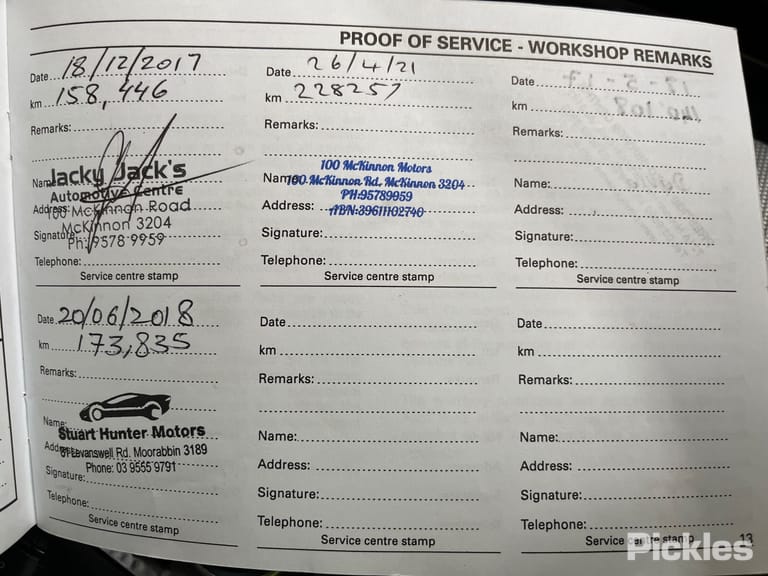 PROOF OF SERVICE - WORKSHOP REMARKS
Date 18/12/2017
km 158,446
Remarks:
Jacky Jack's
Name
Automotive Centre
Address:
100 McKinnon Road
McKinnon 3204
Signature
Ph: 9578 9959
Telephone:
Service centre stamp
Date 26/4/21
km 228257
Remarks:
100 McKinnon Motors
Name
100 McKinnon Rd, McKinnon 3204
PH:95789959
Address:
ABN:39611102740
Signature:
Telephone:
Service centre stamp
Date
km
Remarks:
Name:
Address:
Signature:
Telephone:
Service centre stamp
Date 20/06/2018
km 173,835
Remarks:
Name:
Stuart Hunter Motors
Levanswell Rd. Moorabbin 3189
Phone: 03 9555 9791
Signature:
Telephone:
Service centre stamp
Date
km
Remarks:
Name:
Address:
Signature:
Telephone:
Service centre stamp
Date
km
Remarks:
Name:
Address:
Signature:
Telephone:
Service centre stamp
13
Pickles